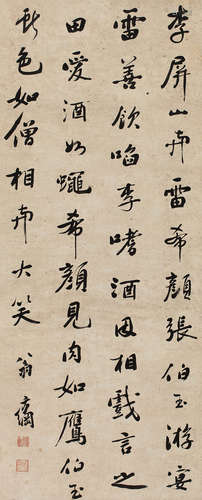 李屏山與雷希顏張伯玉游宴
雷善飲啗李嗜酒因相戲言之
田愛酒如蠅希顏見肉如鷹伯玉
獃色如僧相與大笑
翁